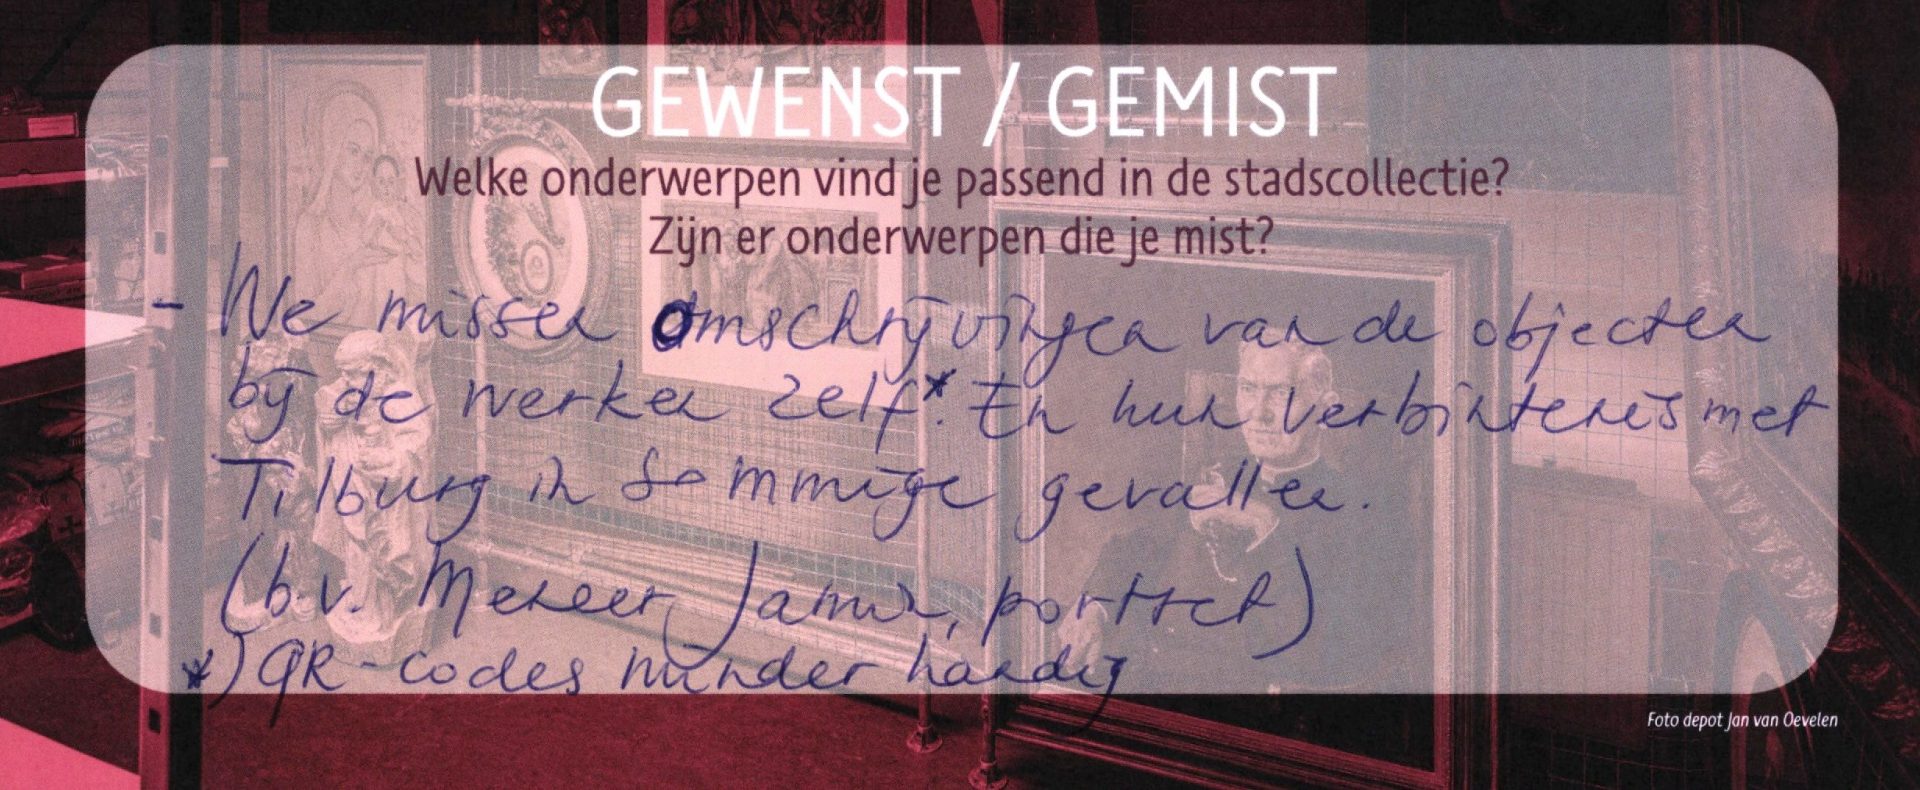 GEWENST / GEMIST
Welke onderwerpen vind je passend in de stadscollectie?
Zijn er onderwerpen die je mist?
- We missen Omschrijvingen van de objecten
bij de werken zelf*. En hun verbintenis met
Tilburg in sommige gevallen.
(b.v. Meneer, portret)
*) QR-codes minder handig
Foto depot Jan van Oevelen